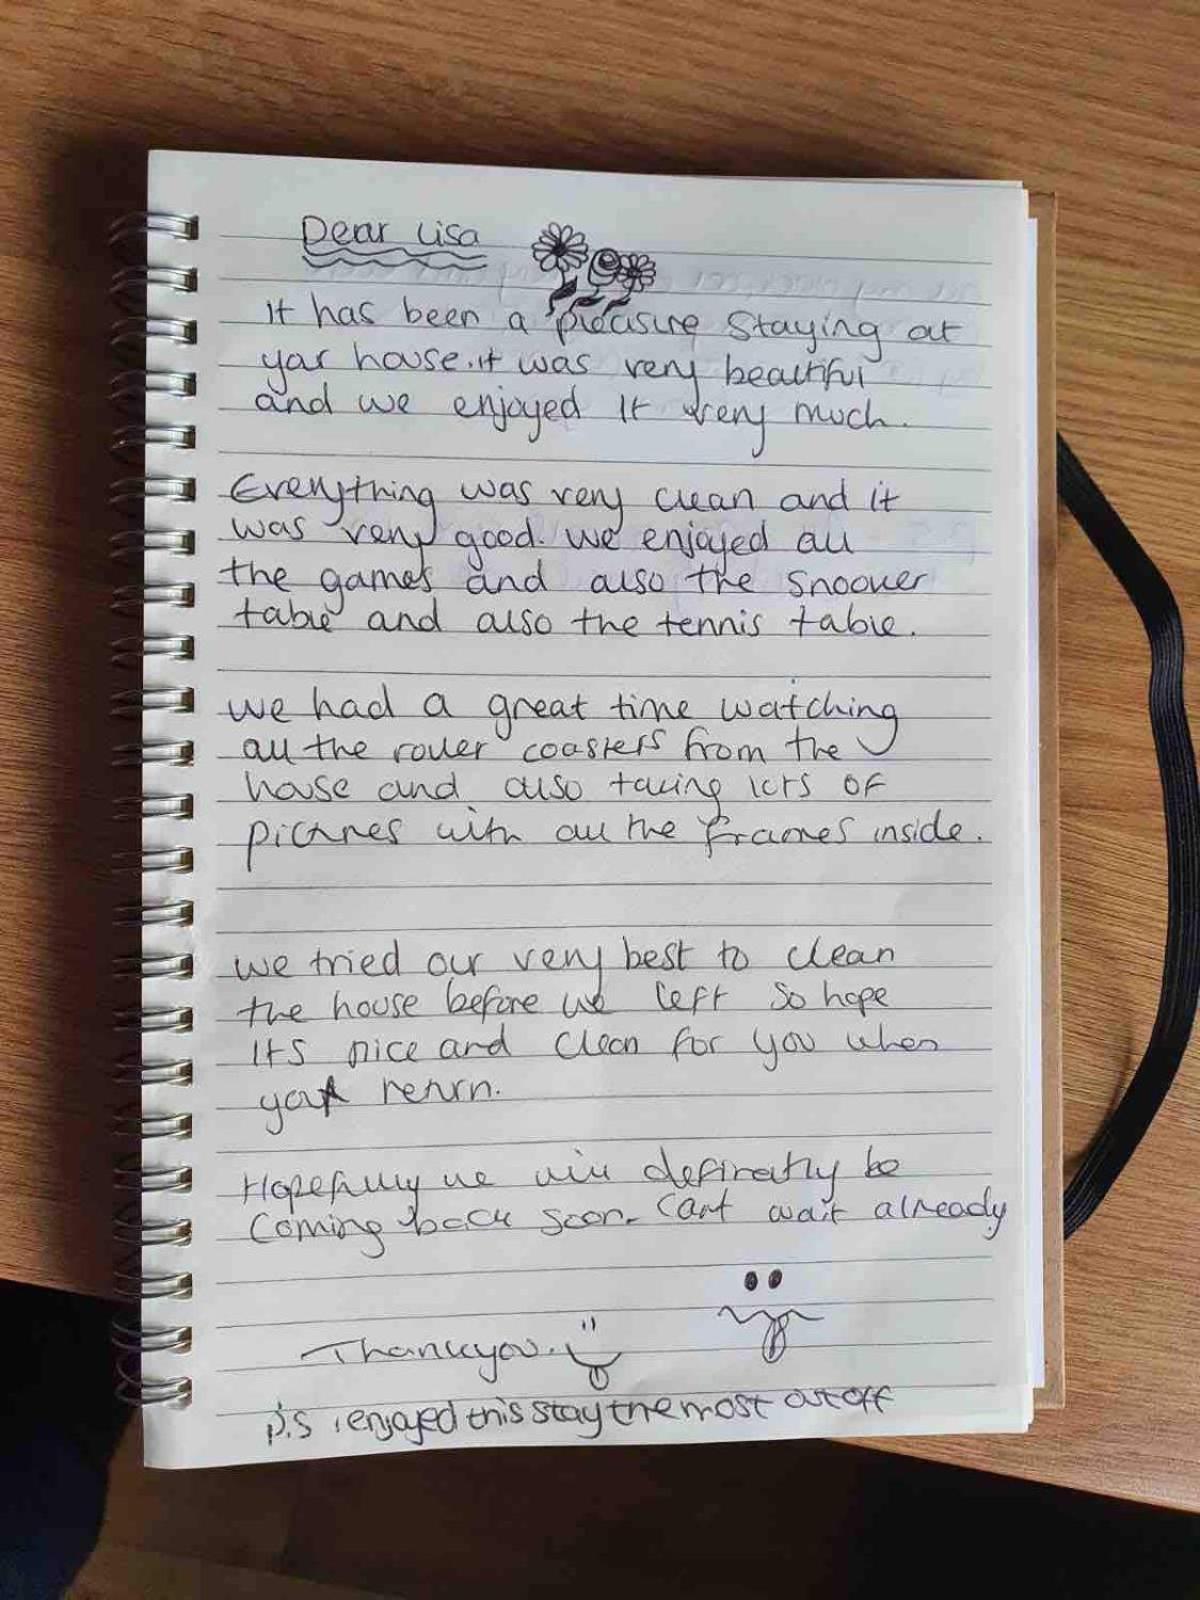 Dear Lisa
It has been a pleasure staying at
your house. it was very beautiful
and we enjoyed it very much.
Everything was very clean and it
was very good. we enjoyed all
the games and also the snooker
table and also the tennis table.
we had a great time watching
all the roller coasters from the
house and also taking lots of
pictures with all the frames inside.
we tried our very best to clean
the house before we left so hope
its nice and clean for you when
you return.
Hopefully we will definetly be
coming back soon. Cant wait already
Thankyou.
p.s i enjoyed this stay the most out off